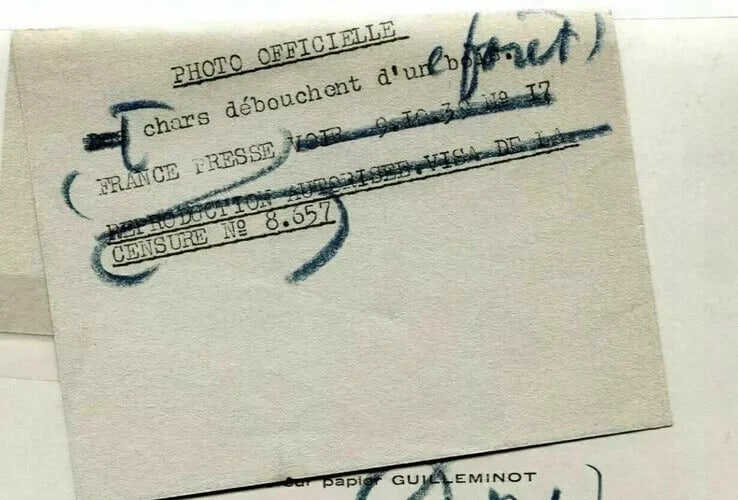 PHOTO OFFICIELLE
Des chars débouchent d'un bois. e forêt)
(FRANCE PRESSE VOIR 9.10.39 Nº 17
REPRODUCTION AUTORISEE.VISA DE LA
CENSURE Nº 8.657)
Sur papier GUILLEMINOT